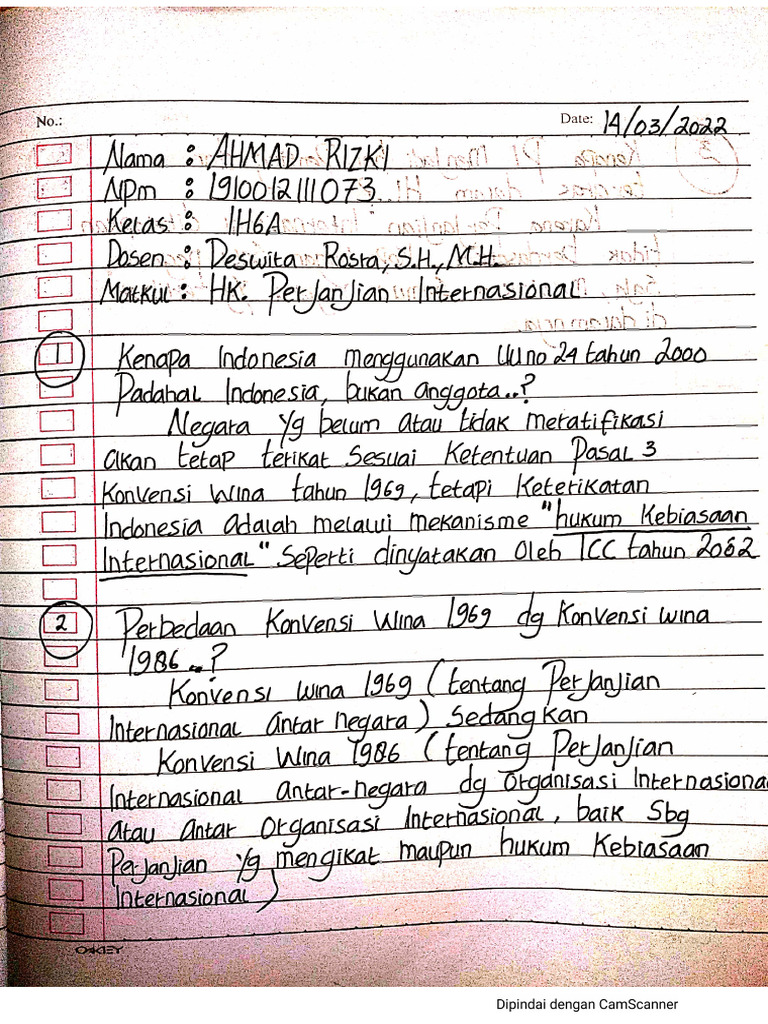 No.:
Date: 14/03/2022
Nama : AHMAD RIZKI
NPM : 1910012111073
Kelas : IH6A
Dosen : Deswita Rosra, S.H., M.H.
Matkul : HK. Perjanjian Internasional
1 Kenapa Indonesia menggunakan UU no 24 tahun 2000
Padahal Indonesia, bukan anggota..?
Negara yg belum atau tidak meratifikasi
akan tetap terikat sesuai Ketentuan Pasal 3
Konvensi Wina tahun 1969, tetapi Keterikatan
Indonesia adalah melalui mekanisme "hukum Kebiasaan
Internasional" Seperti dinyatakan Oleh ICC tahun
2 Perbedaan Konvensi Wina 1969 dg Konvensi wina
1986..?
Konvensi wina 1969 (tentang Perjanjian
Internasional antar negara) Sedangkan
Konvensi Wina 1986 (tentang Perjanjian
Internasional antar-negara dg Organisasi Internasiona
atau antar Organisasi Internasional, baik Sbg
Perjanjian yg mengikat maupun hukum Kebiasaan
Internasional)
OAKLEY
Dipindai dengan CamScanner